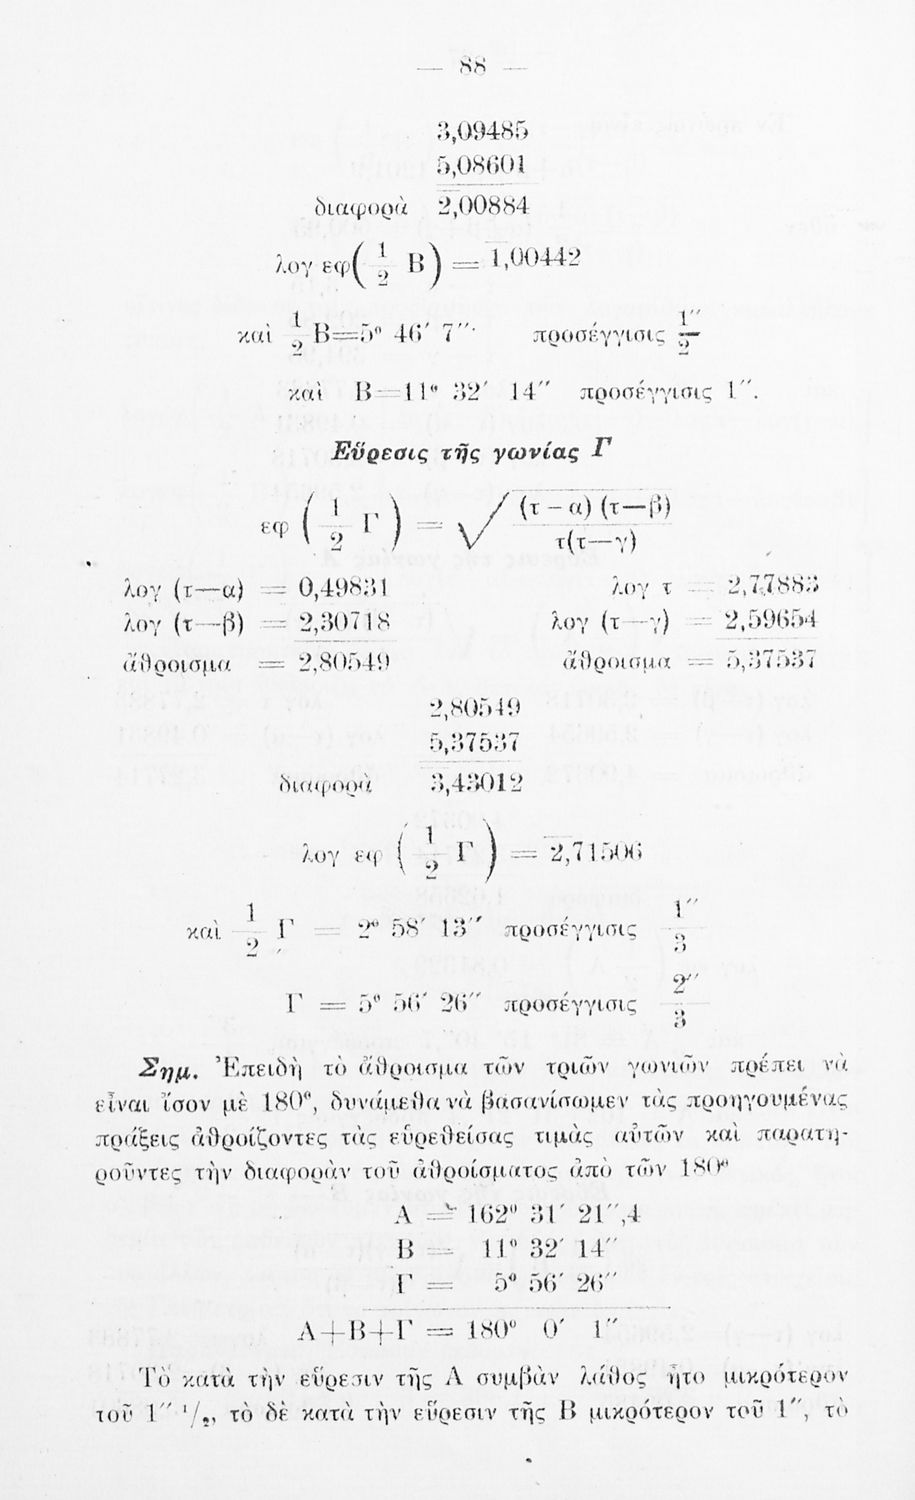 — 88 —
3,09485
5,08601
διαφορὰ 2̅,00884
λογ εφ(1/2 Β) = 1̅,00442
καὶ 1/2 Β=5° 46′ 7″· προσέγγισις 1″/2
καὶ Β=11° 32′ 14″ προσέγγισις 1″.
Εὕρεσις τῆς γωνίας Γ
εφ (1/2 Γ) = √((τ—α) (τ—β) / τ(τ—γ))
λογ (τ—α) = 0,49831 λογ τ = 2,77883
λογ (τ—β) = 2,30718 λογ (τ—γ) = 2,59654
ἄθροισμα = 2,80549 ἄθροισμα = 5,37537
2,80549
5,37537
διαφορὰ 3̅,43012
λογ εφ (1/2 Γ) = 2̅,71506
καὶ 1/2 Γ = 2° 58′ 13″ προσέγγισις 1″/3
Γ = 5° 56′ 26″ προσέγγισις 2″/3
Σημ. Ἐπειδὴ τὸ ἄθροισμα τῶν τριῶν γωνιῶν πρέπει νὰ
εἶναι ἴσον μὲ 180°, δυνάμεθα νὰ βασανίσωμεν τὰς προηγουμένας
πράξεις ἀθροίζοντες τὰς εὑρεθείσας τιμὰς αὐτῶν καὶ παρατη-
ροῦντες τὴν διαφορὰν τοῦ ἀθροίσματος ἀπὸ τῶν 180°
Α = 162° 31′ 21″,4
Β = 11° 32′ 14″
Γ = 5° 56′ 26″
Α+Β+Γ = 180° 0′ 1″
Τὸ κατὰ τὴν εὕρεσιν τῆς Α συμβὰν λάθος ἦτο μικρότερον
τοῦ 1″ 1/2, τὸ δὲ κατὰ τὴν εὕρεσιν τῆς Β μικρότερον τοῦ 1″, τὸ